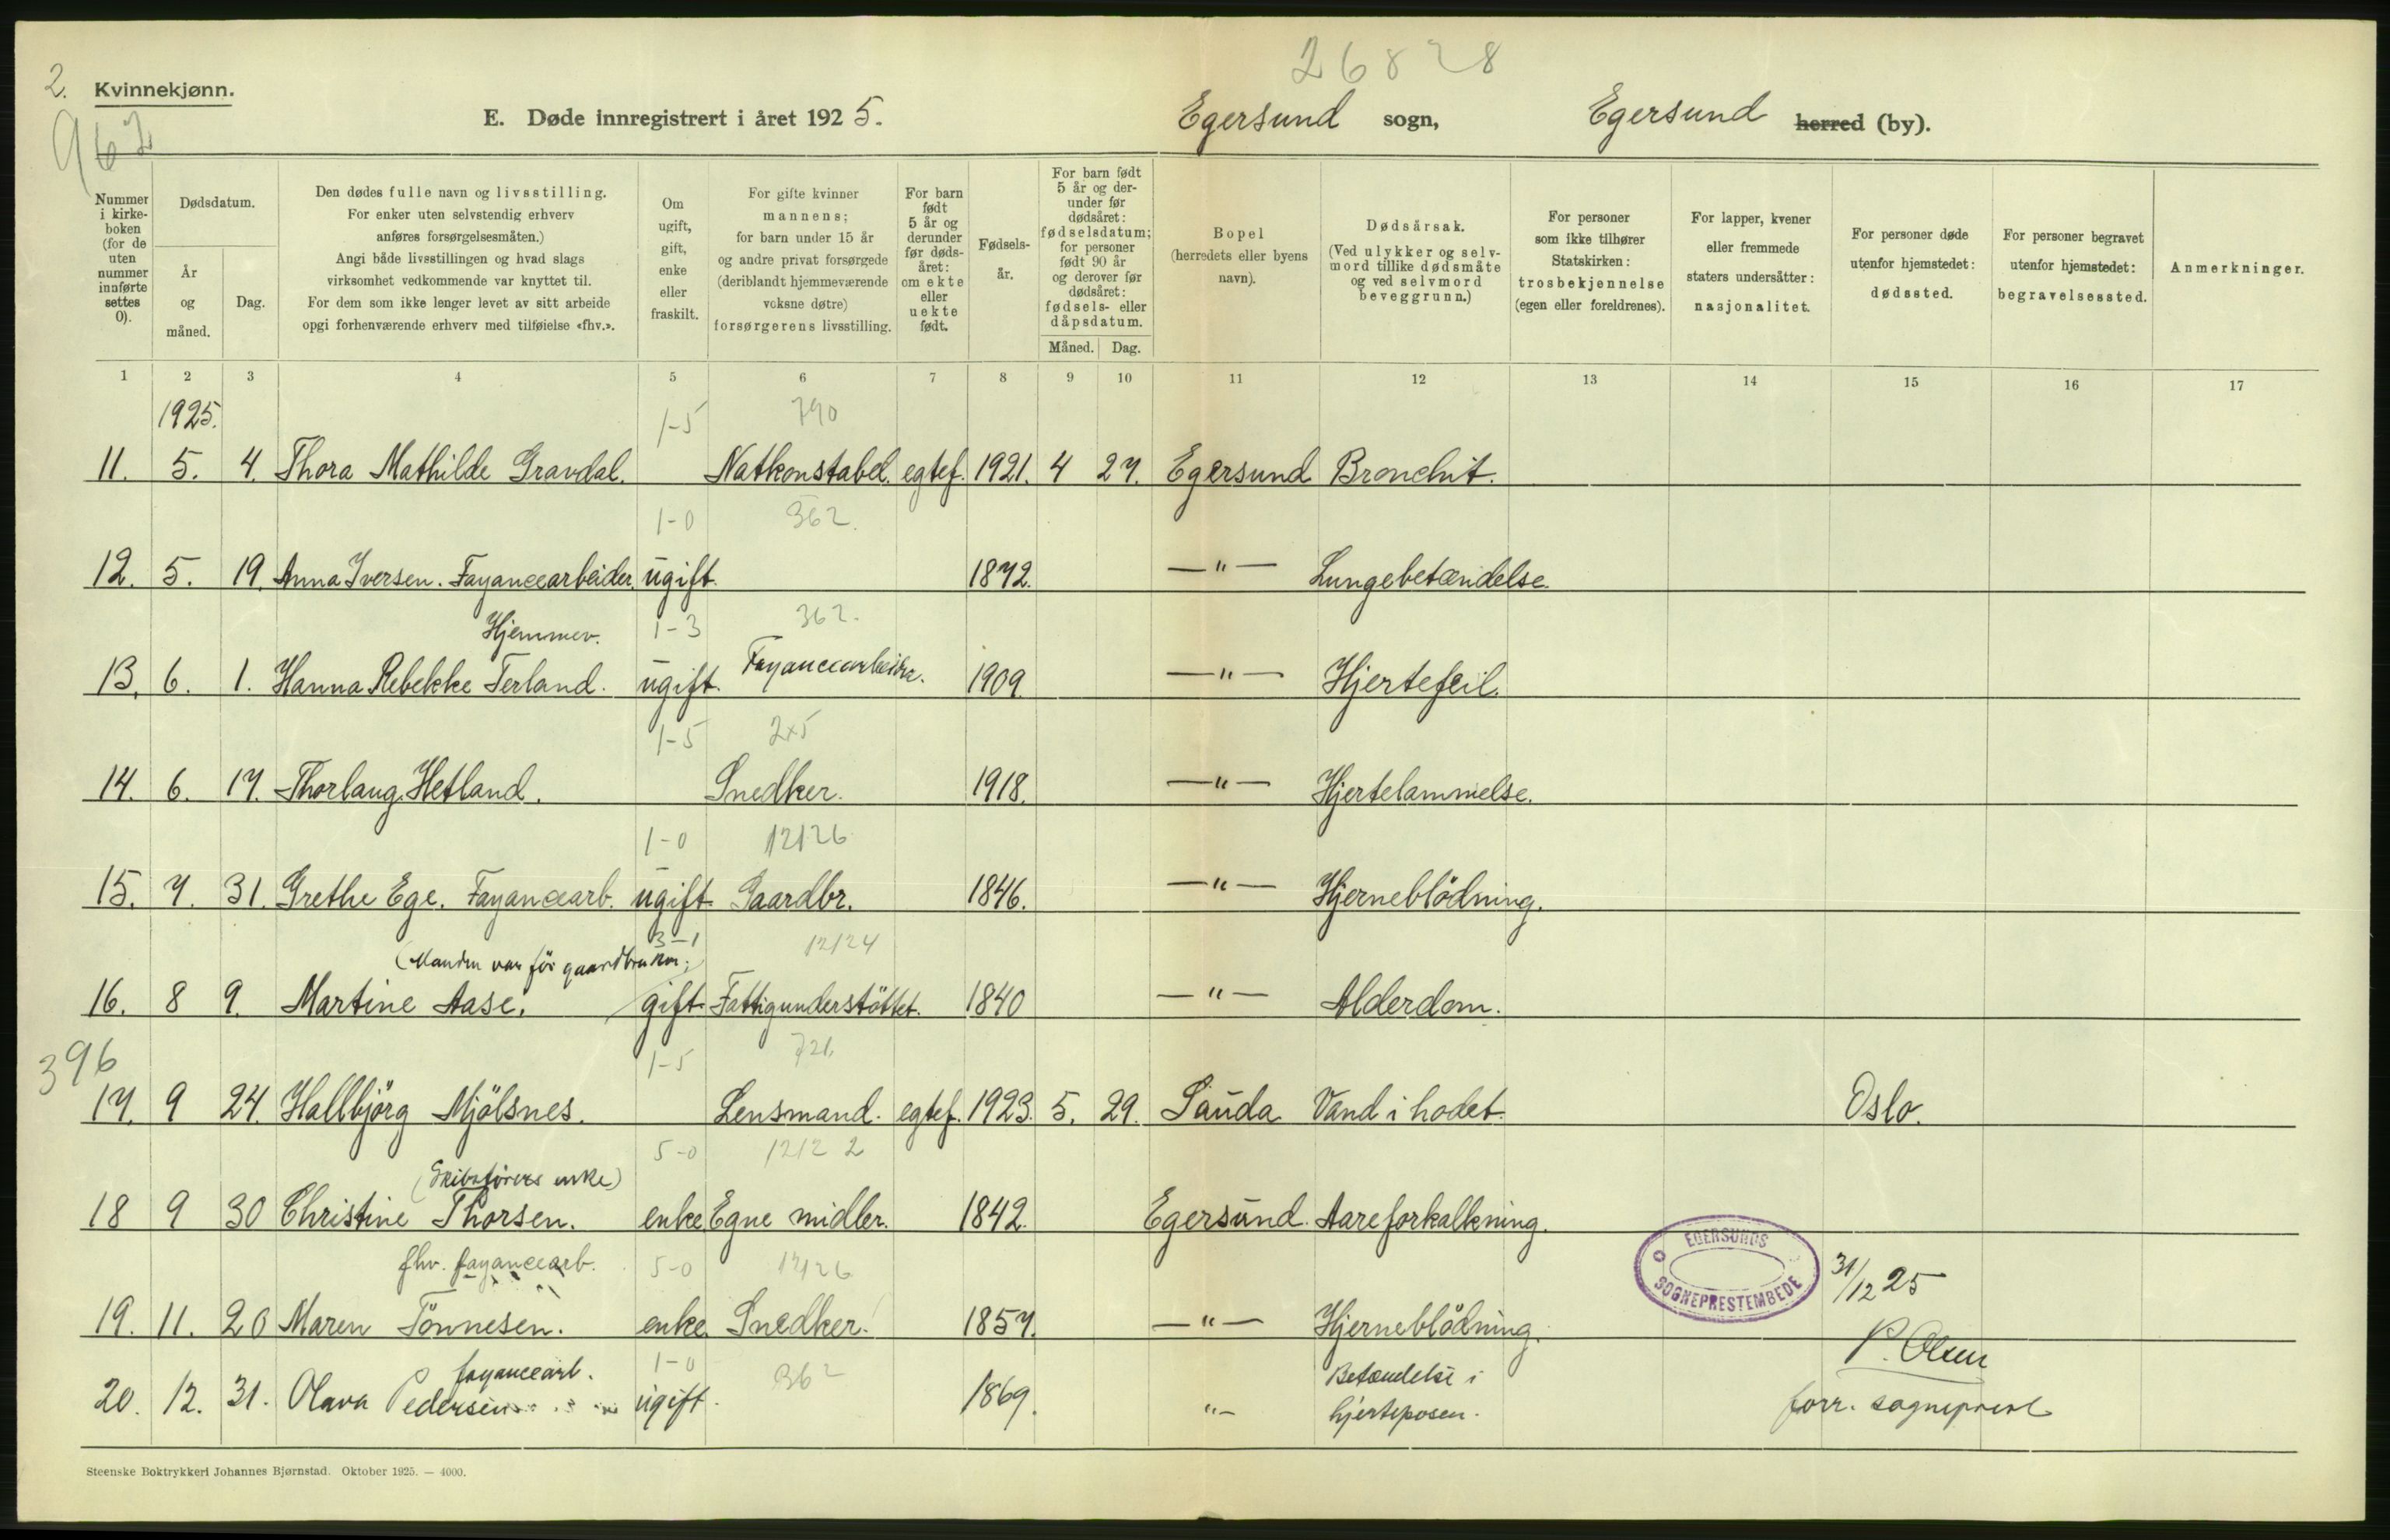 2. Kvinnekjønn.
26828
962
E. Døde innregistrert i året 1925. Egersund sogn, Egersund herred (by).
Nummer i kirke-boken (for de uten nummer innførte settes 0).
Dødsdatum.
År og måned.
Dag.
Den dødes fulle navn og livsstilling.
For enker uten selvstendig erhverv
anføres forsørgelsesmåten.)
Angi både livsstillingen og hvad slags
virksomhet vedkommende var knyttet til.
For dem som ikke lenger levet av sitt arbeide
opgi forhenværende erhverv med tilføielse «fhv.».
Om ugift, gift, enke eller fraskilt.
For gifte kvinner
mannens;
for barn under 15 år
og andre privat forsørgede
(deriblandt hjemmeværende
voksne døtre)
forsørgerens livsstilling.
For barn født 5 år og derunder før døds-året: om ekte eller uekte født.
Fødsels-år.
For barn født 5 år og der-under før dødsåret: fødselsdatum; for personer født 90 år og derover før dødsåret: fødsels- eller dåpsdatum.
Måned. Dag.
Bopel
(herredets eller byens
navn).
Dødsårsak.
(Ved ulykker og selv-
mord tillike dødsmåte
og ved selvmord
beveggrunn.)
For personer
som ikke tilhører
Statskirken:
trosbekjennelse
(egen eller foreldrenes).
For lapper, kvener
eller fremmede
staters undersåtter:
nasjonalitet.
For personer døde
utenfor hjemstedet:
dødssted.
For personer begravet
utenfor hjemstedet:
begravelsessted.
Anmerkninger.
1 2 3 4 5 6 7 8 9 10 11 12 13 14 15 16 17
1925.
1-5 790
11. 5. 4. Thora Mathilde Gravdal. Natkonstabel. egtef. 1921. 4 27. Egersund Bronchit.
1-0 362.
12. 5. 19. Anna Iversen. Fayancearbeider. ugift. 1872. —"— Lungebetændelse.
Hjemmev. 1-3 362.
13. 6. 1. Hanna Rebekke Terland. ugift. Fayancearbeider. 1909. —"— Hjertefeil.
1-5 2x5
14. 6. 17. Thorlaug Hetland. Snedker. 1918. —"— Hjertelammelse.
1-0 12126
15. 7. 31. Grethe Ege. Fayancearb. ugift. Gaardbr. 1846. —"— Hjerneblödning.
(Manden var før gaardbruker; 3-1 12124
16. 8 9. Martine Aase. gift. Fattigunderstöttet. 1840 —"— Alderdom.
396 1-5 721.
17. 9 24. Hallbjörg Mjölsnes. Lensmand. egtef. 1923. 5. 29. Sauda Vand i hodet. Oslo.
5-0 1212 2
(Skibsførers enke)
18 9 30 Christine Thorsen. enke. Egne midler. 1842. Egersund. Aareforkalkning.
fhv. fayancearb. 5-0 12126
19. 11. 20 Maren Tönnesen. enke. Snedker. 1857. —"— Hjerneblödning.
fayancearb. 1-0 362 Betændelse i
20. 12. 31. Olava Pedersen ugift. 1869. "- hjerteposen.
EGERSUNDS SOGNEPRESTEMBEDE
31/12 25
P. Olsen
forr. sogneprest
Steenske Boktrykkeri Johannes Bjørnstad. Oktober 1925. — 4000.